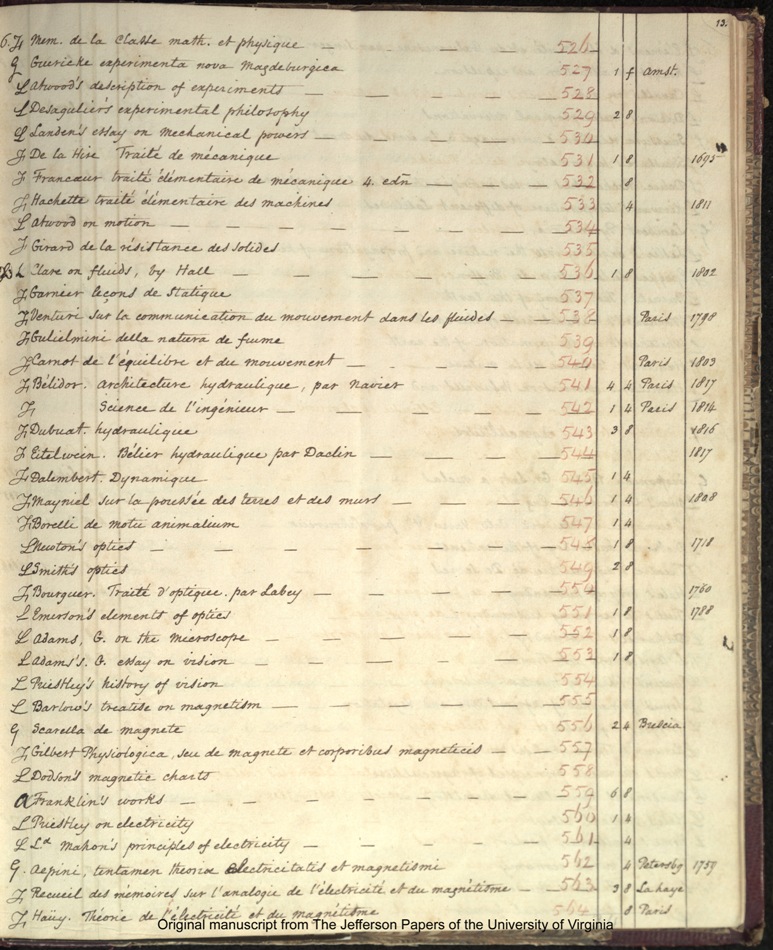 13.
6. F Mem. de la Classe math. et physique — 526
G Guericke experimenta nova Magdeburgica 527 1 f Amst.
L Atwood's description of experiments — 528
L Desagulier's experimental philosophy 529 2 8
L Landen's essay on Mechanical powers — 530
F De la Hire Traité de mécanique 531 1 8 1695
F Francœur traité élémentaire de mécanique 4. edn — 532 8
F Hachette traité élémentaire des machines 533 4 1811
L Atwood on motion — 534
F Girard de la résistance des solides 535
L Clare on fluids, by Hall — 536 1 8 1802
F Garnier leçons de Statique 537
F Venturi sur la communication du mouvement dans les fluides — 538 Paris 1798
F Gulielmini della natura de fiume 539
F Carnot de l'équilibre et du mouvement — 540 Paris 1803
F Bélidor. architecture hydraulique, par Navier 541 4 4 Paris 1817
F Science de l'ingénieur — 542 1 4 Paris 1814
F Dubuat hydraulique 543 3 8 1816
F Eitelwein. Bélier hydraulique par Daclin — 544 1817
F Dalembert. Dynamique 545 1 4
F Mayniel sur la poussée des terres et des murs — 546 1 4 1808
F Borelli de motu animalium 547 1 4
L Newton's optics — 548 1 8 1718
L Smith's optics 549 2 8
F Bourguer. Traité d'optique. par Labey — 550 1760
L Emerson's elements of optics 551 1 8 1788
L Adams, G. on the microscope — 552 1 8
L Adams's. G. essay on vision — 553 1 8
L Priestley's history of vision 554
L Barlow's treatise on magnetism — 555
G Scarella de magnete 556 2 4 Brescia
F Gilbert Physiologica, seu de magnete et corporibus magneticis — 557
L Dodson's magnetic charts 558
a Franklin's works — 559 6 8
L Priestley on electricity 560 1 4
L Ld Mahon's principles of electricity — 561 4
G. Aepini, tentamen theoriæ electricitatis et magnetismi 562 4 Petersbg 1759
F Recueil des mémoires sur l'analogie de l'électricité et du magnétisme — 563 3 8 La haye
F Haüy. Théorie de l'électricité et du magnétisme 564 8 Paris
Original manuscript from The Jefferson Papers of the University of Virginia